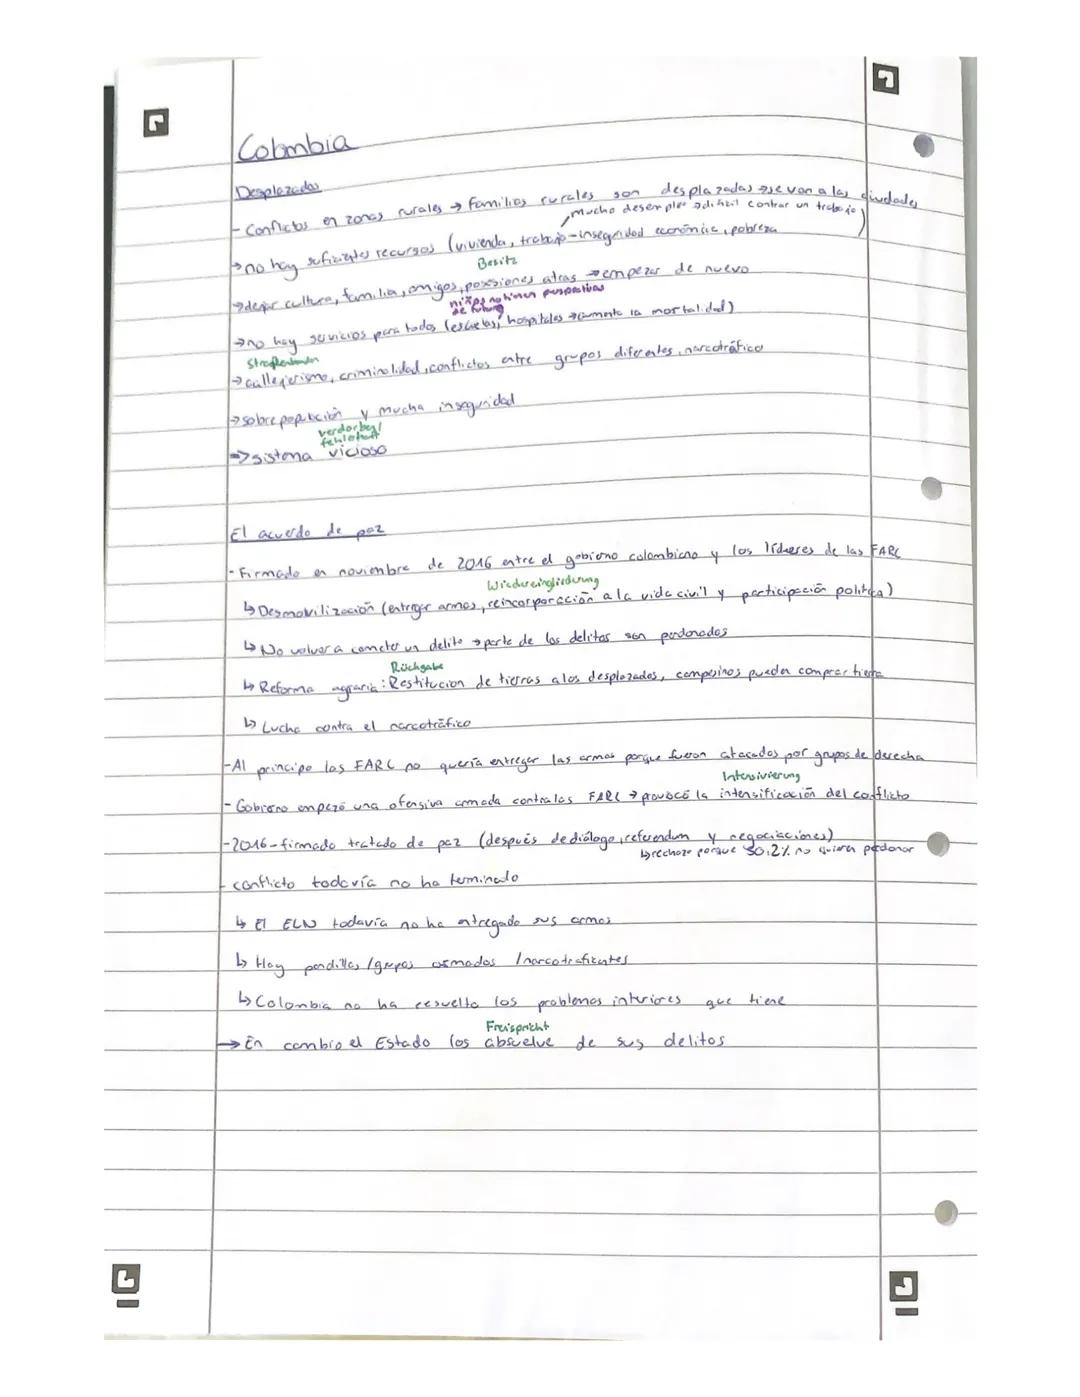 Colombia
Desplazados
- Conflictos en zonas rurales → familias rurales son desplazadas → se van a las ciudades
mucho desempleo → difícil contrar un trabajo
→ no hay suficientes recursos (vivienda, trabajo - inseguridad económica, pobreza)
Besitz
→ dejar cultura, familia, amigos, posesiones atras → empezar de nuevo
niños no tienen perspectivas
de futuro
→ no hay servicios para todos (escuelas, hospitales → aumenta la mortalidad)
→ callejerismo, criminalidad, conflictos entre grupos diferentes, narcotráfico
→ sobrepoblación y mucha inseguridad
verdorben/
fehlerhaft
⇒ sistema vicioso
El acuerdo de paz
- Firmado en noviembre de 2016 entre el gobierno colombiano y los líderes de las FARC
Wiedereingliederung
↳ Desmovilización (entregar armas, reincorporación a la vida civil y participación política)
↳ No volver a cometer un delito → parte de los delitos son perdonados
Rückgabe
↳ Reforma agraria: Restitucion de tierras a los desplazados, campesinos pueden comprar tierra
↳ Lucha contra el narcotráfico
- Al principo las FARC no quería entregar las armas porque fueron atacados por grupos de derecha
Intensivierung
- Gobierno empezó una ofensiva armada contra las FARC → provocó la intensificación del conflicto
- 2016 - firmado tratado de paz (después de diálogo, referendum y negociaciones)
↳ rechazo porque 50,2% no quieren perdonar
- conflicto todavía no ha terminado
↳ El ELN todavía no ha entregado sus armas
↳ Hay pandillas / grupos armados / narcotraficantes
↳ Colombia no ha resuelto los problemas interiores que tiene
Freispricht
→ En cambio el Estado los absuelve de sus delitos